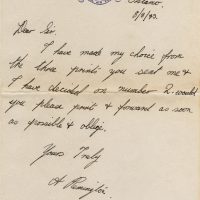 Ontario.
8/8/93.
Dear Sir.
I have made my choice from
the three prints you sent me &
I have decided on number 2. would
you please print & forward as soon
as possible & oblige.
Yours Truly
A Pennington